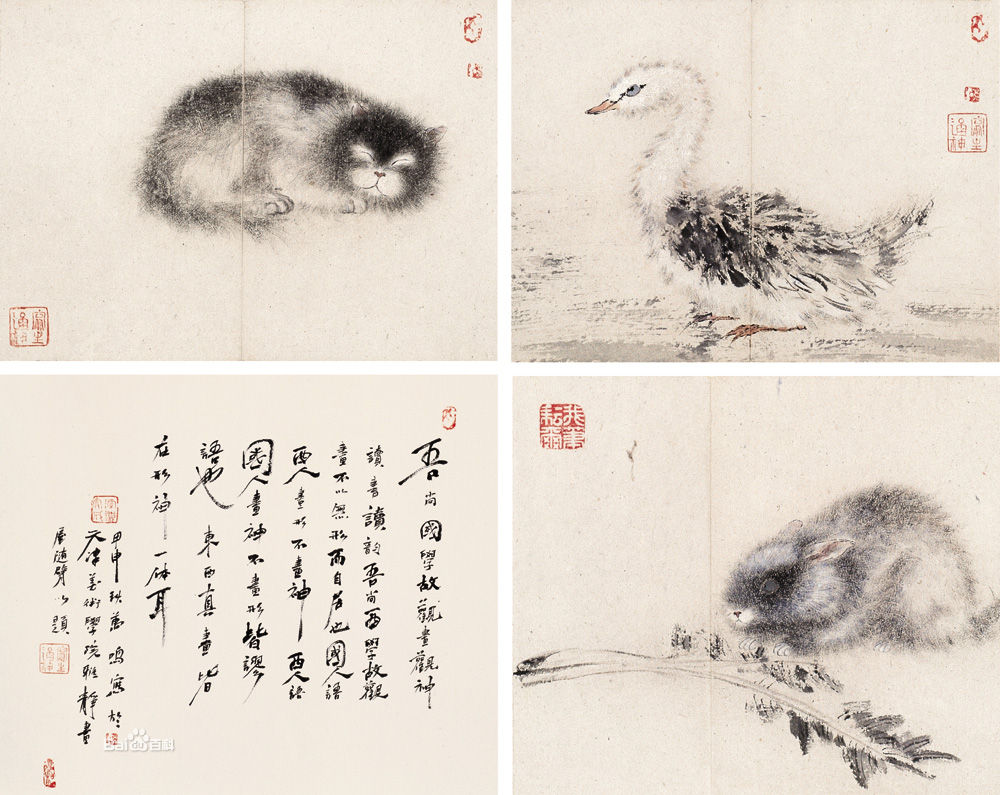 吾尚國學故觀畫觀神
讀書讀韵吾尚西學故觀
畫不以無形而自居也國人語
西人畫形不畫神西人語
國人畫神不畫形皆謬
語也東西真畫皆
在形神一体耳
甲申秋鳴寫於
天津美術學院雅靜畫
屋隨筆以題
Bai百科